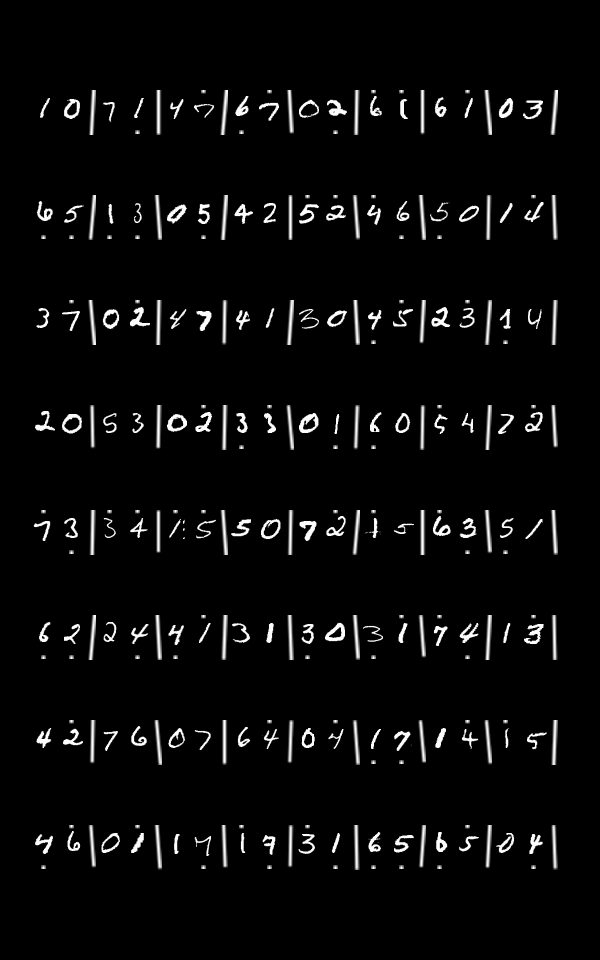 1 0 | 7 1̣ | 4 7̇ | 6̣ 7 | 0 2̣ | 6̇ 1̇ | 6 1̇ | 0 3 |
6̣ 5̣ | 1̣ 3̣ | 0 5̣ | 4 2 | 5̇ 2̇ | 4̇ 6̣ | 5̣ 0 | 1 4̇ |
3 7̇ | 0 2̇ | 4 7 | 4 1 | 3 0 | 4̣ 5̇ | 2 3̇ | 1̣ 4 |
2 0 | 5 3 | 0 2̇ | 3̣ 3̇ | 0 1̣ | 6̣ 0 | 5̇ 4 | 7 2̇ |
7̇ 3̣ | 3̇ 4̇ | 1̇ 5̇ | 5 0 | 7 2̇ | 1̇ 5 | 6̇ 3̣ | 5̣ 1 |
6̣ 2̣ | 2 4̣ | 4̣ 1̇ | 3 1 | 3̣ 0 | 3̣ 1̇ | 7̇ 4̣ | 1 3̇ |
4 2̇ | 7 6 | 0 7 | 6 4̇ | 0 4̇ | 1̣ 7̣ | 1 4̇ | 1̇ 5 |
4̣ 6̇ | 0 1̇ | 1 7̣ | 1 7̣ | 3 1̣ | 6̣ 5̣ | 6̣ 5 | 0 4̣ |